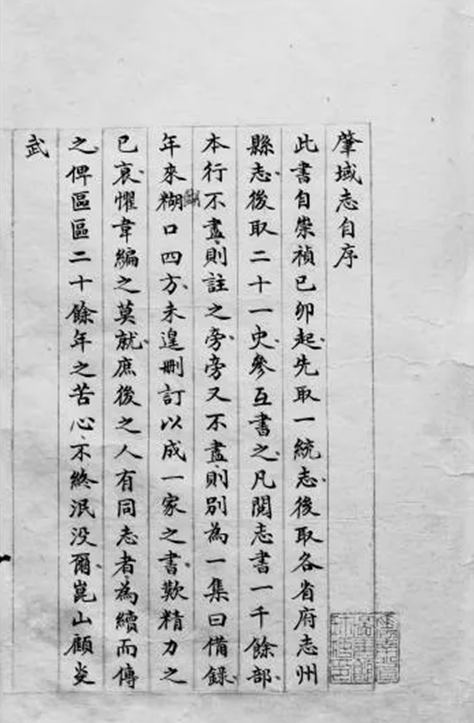 肇域志自序
此書自崇禎己卯起、先取一統志、後取各省府志州
縣志、後取二十一史、參互書之、凡閱志書一千餘部、
本行不盡、則註之旁、旁又不盡、則別為一集曰備錄、
年來糊口四方、未遑刪訂以成一家之書、歎精力之
已衰、懼韋編之莫就、庶後之人有同志者為續而傳
之、俾區區二十餘年之苦心、不終泯没爾、崑山顧炎
武